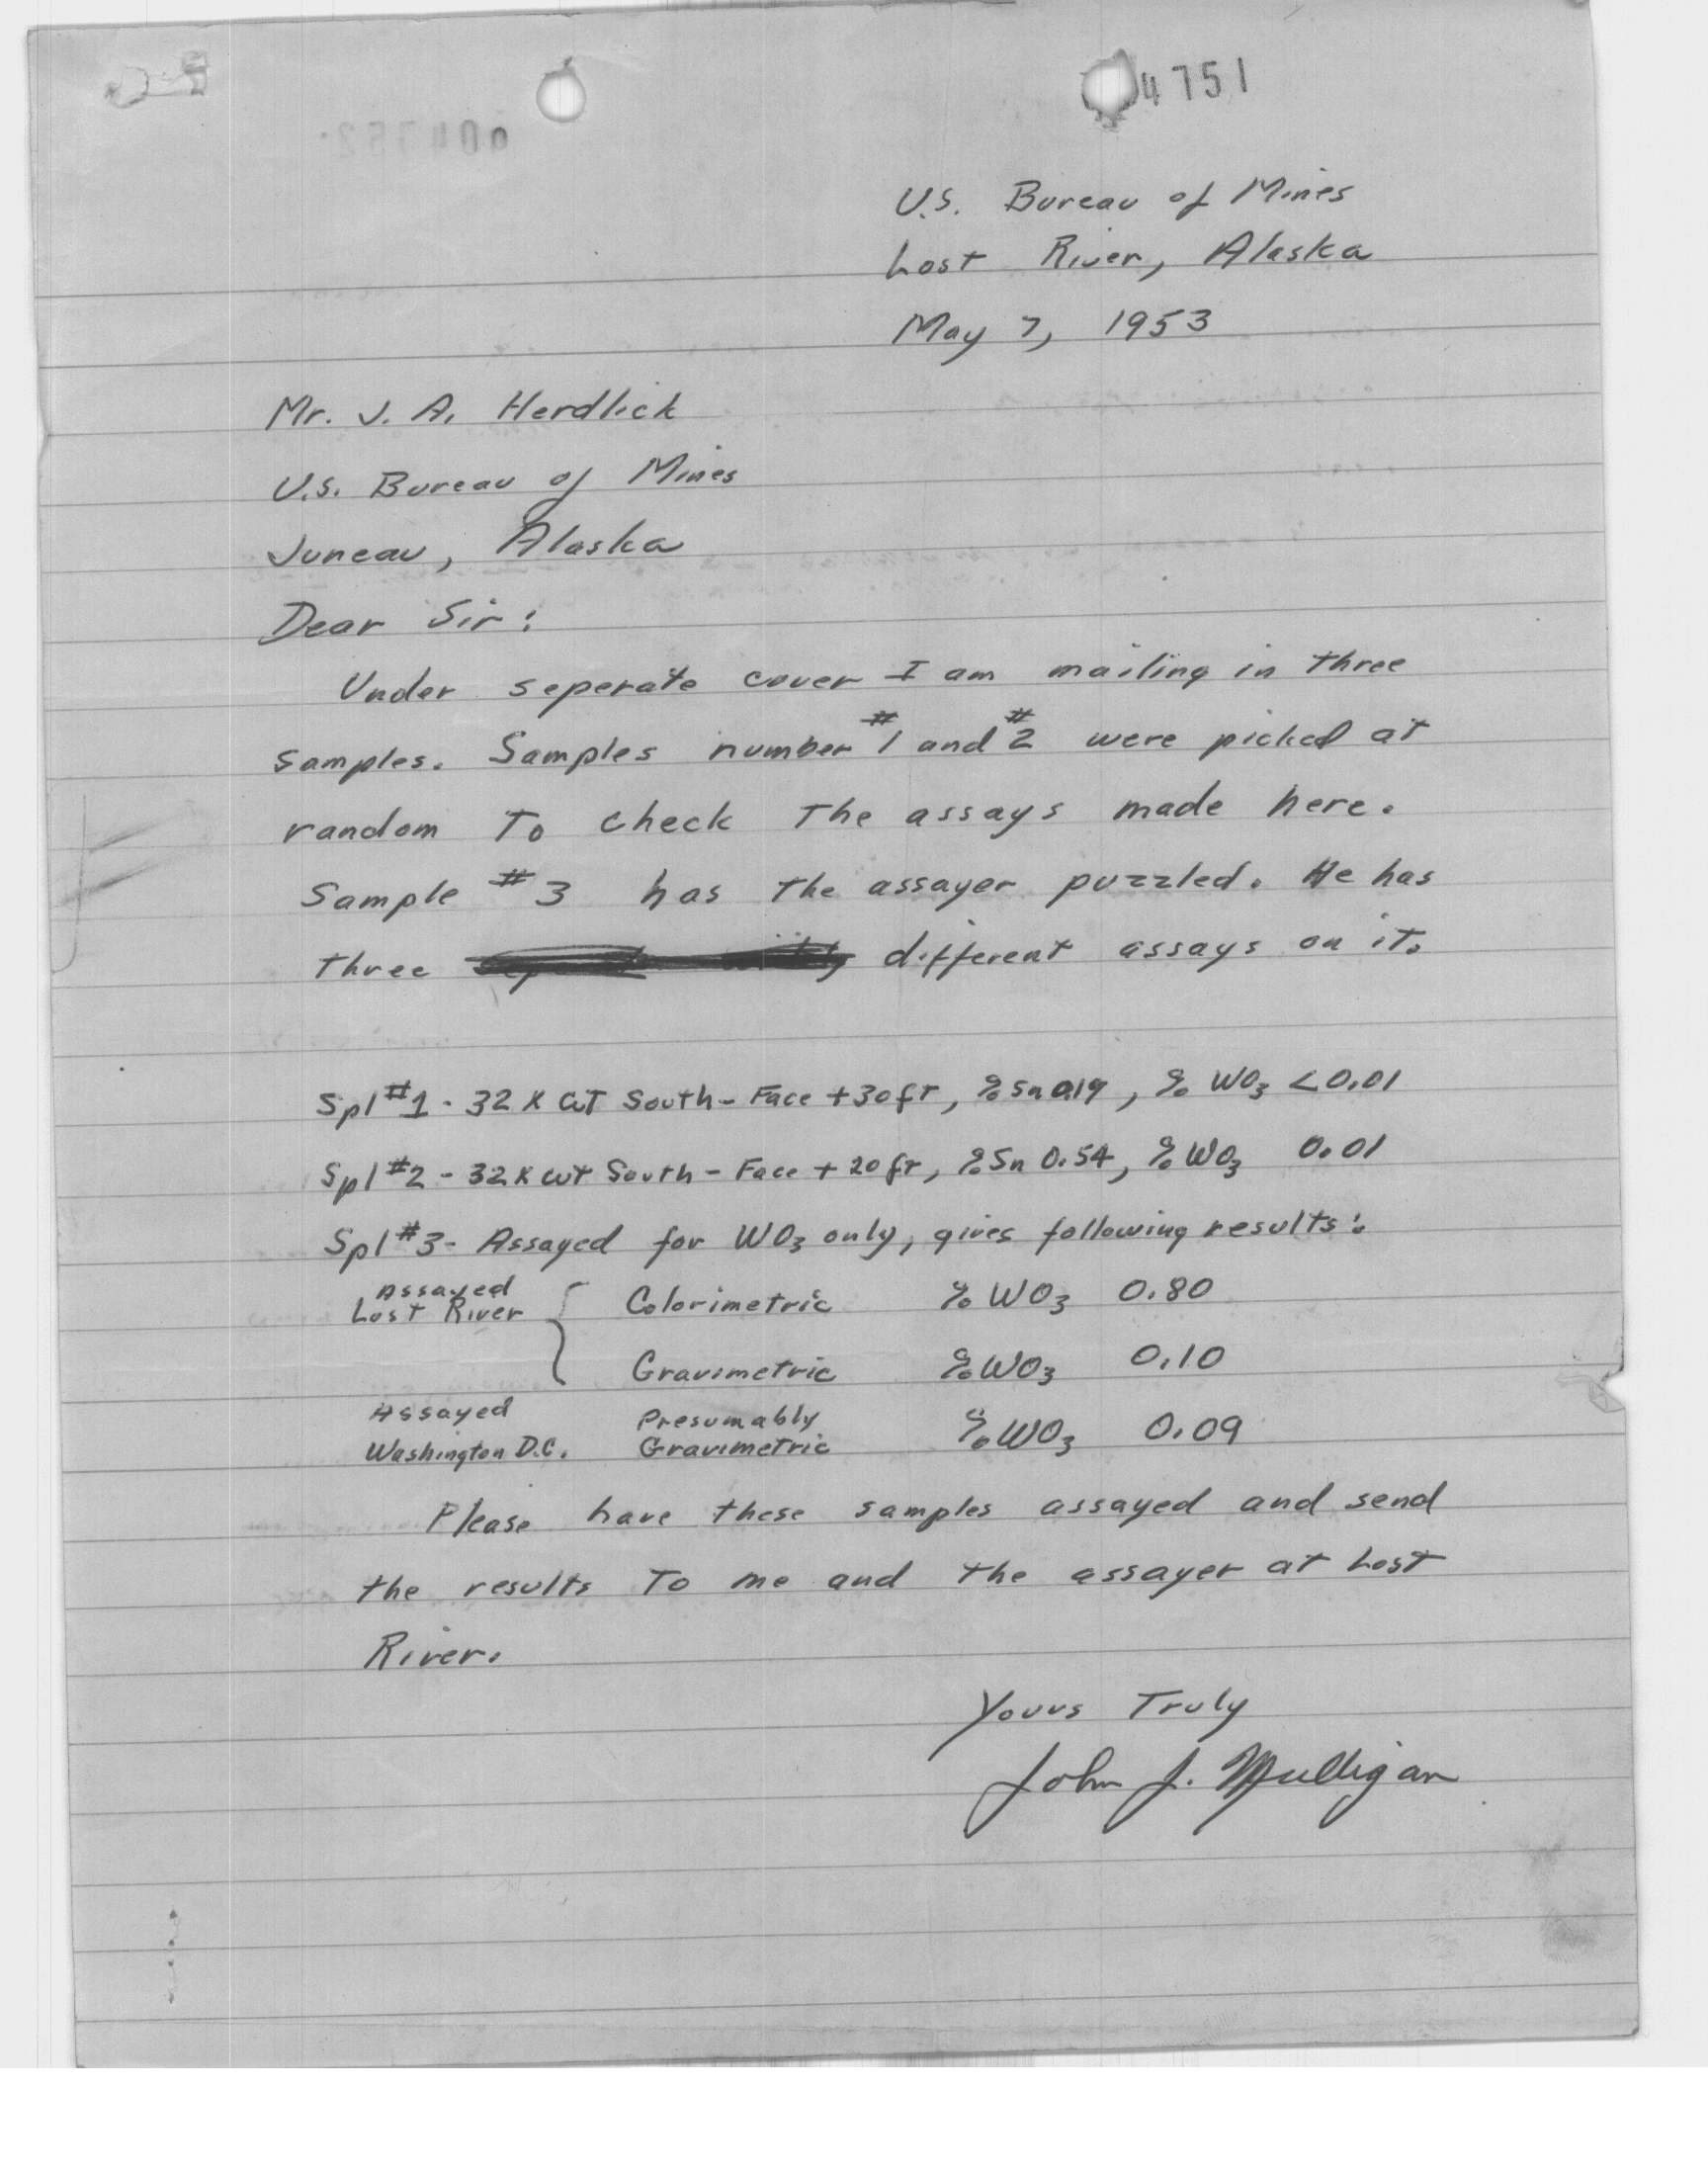 4751
U.S. Bureau of Mines
Lost River, Alaska
May 7, 1953
Mr. J. A. Herdlick
U.S. Bureau of Mines
Juneau, Alaska
Dear Sir:
Under seperate cover I am mailing in three
samples. Samples number #1 and #2 were picked at
random To check The assays made here.
Sample #3 has The assayer puzzled. He has
Three different assays on it.
Spl #1 - 32 X cut South - Face +30 ft, % Sn 0.19, % WO3 <0.01
Spl #2 - 32 X cut South - Face + 20 ft, % Sn 0.54, % WO3 0.01
Spl #3 - Assayed for WO3 only, gives following results:
Assayed
Lost River { Colorimetric % WO3 0.80
Gravimetric % WO3 0.10
Assayed Presumably
Washington D.C. Gravimetric % WO3 0.09
Please have these samples assayed and send
the results To me and the assayer at Lost
River.
Yours Truly
John J. Mulligan